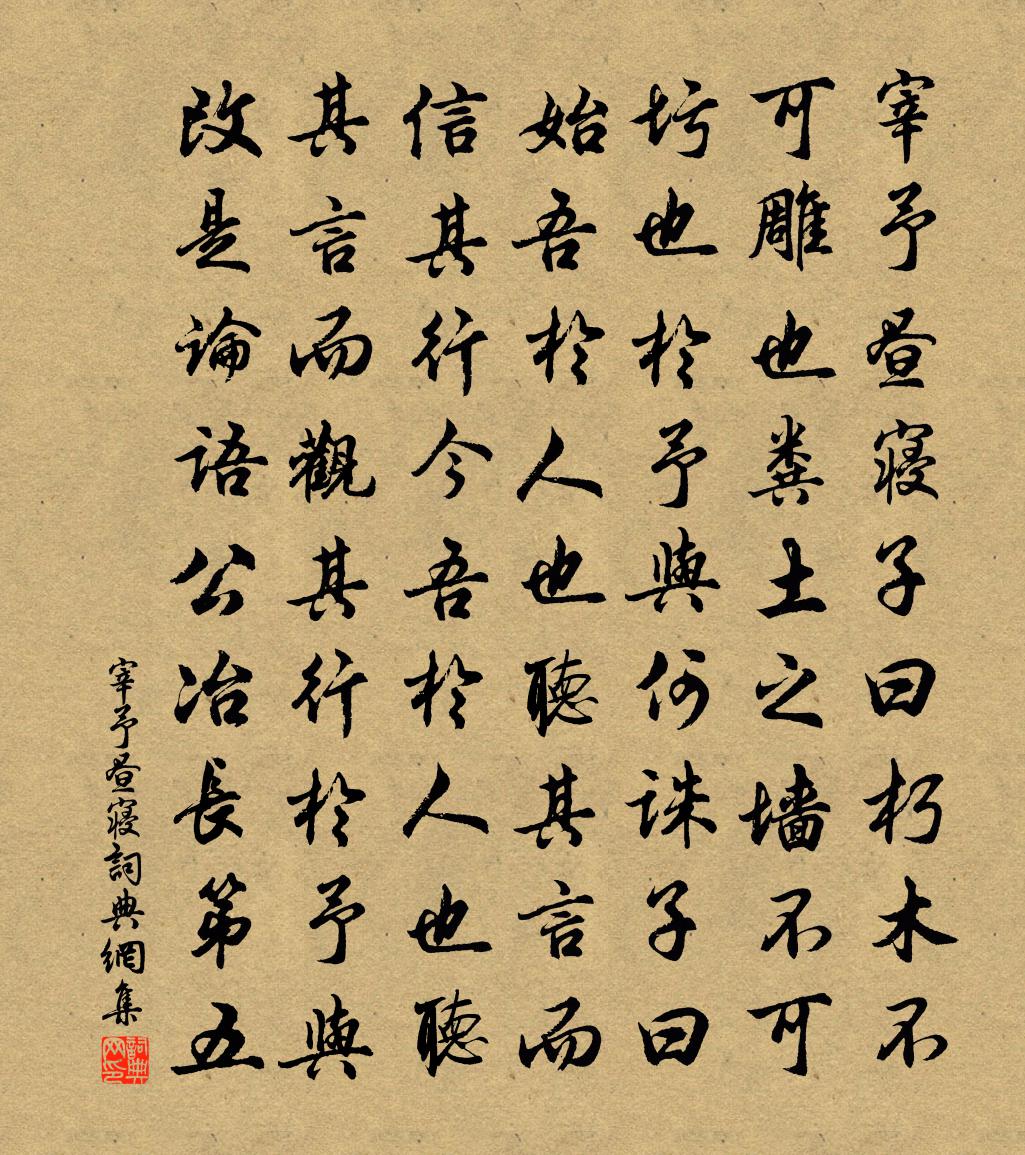 宰予晝寝子曰朽木不
可雕也糞土之墻不可
圬也於予與何誅子曰
始吾於人也聽其言而
信其行今吾於人也聽
其言而觀其行於予與
改是論語公冶長第五
宰予晝寝詞典網集
詞典
网印